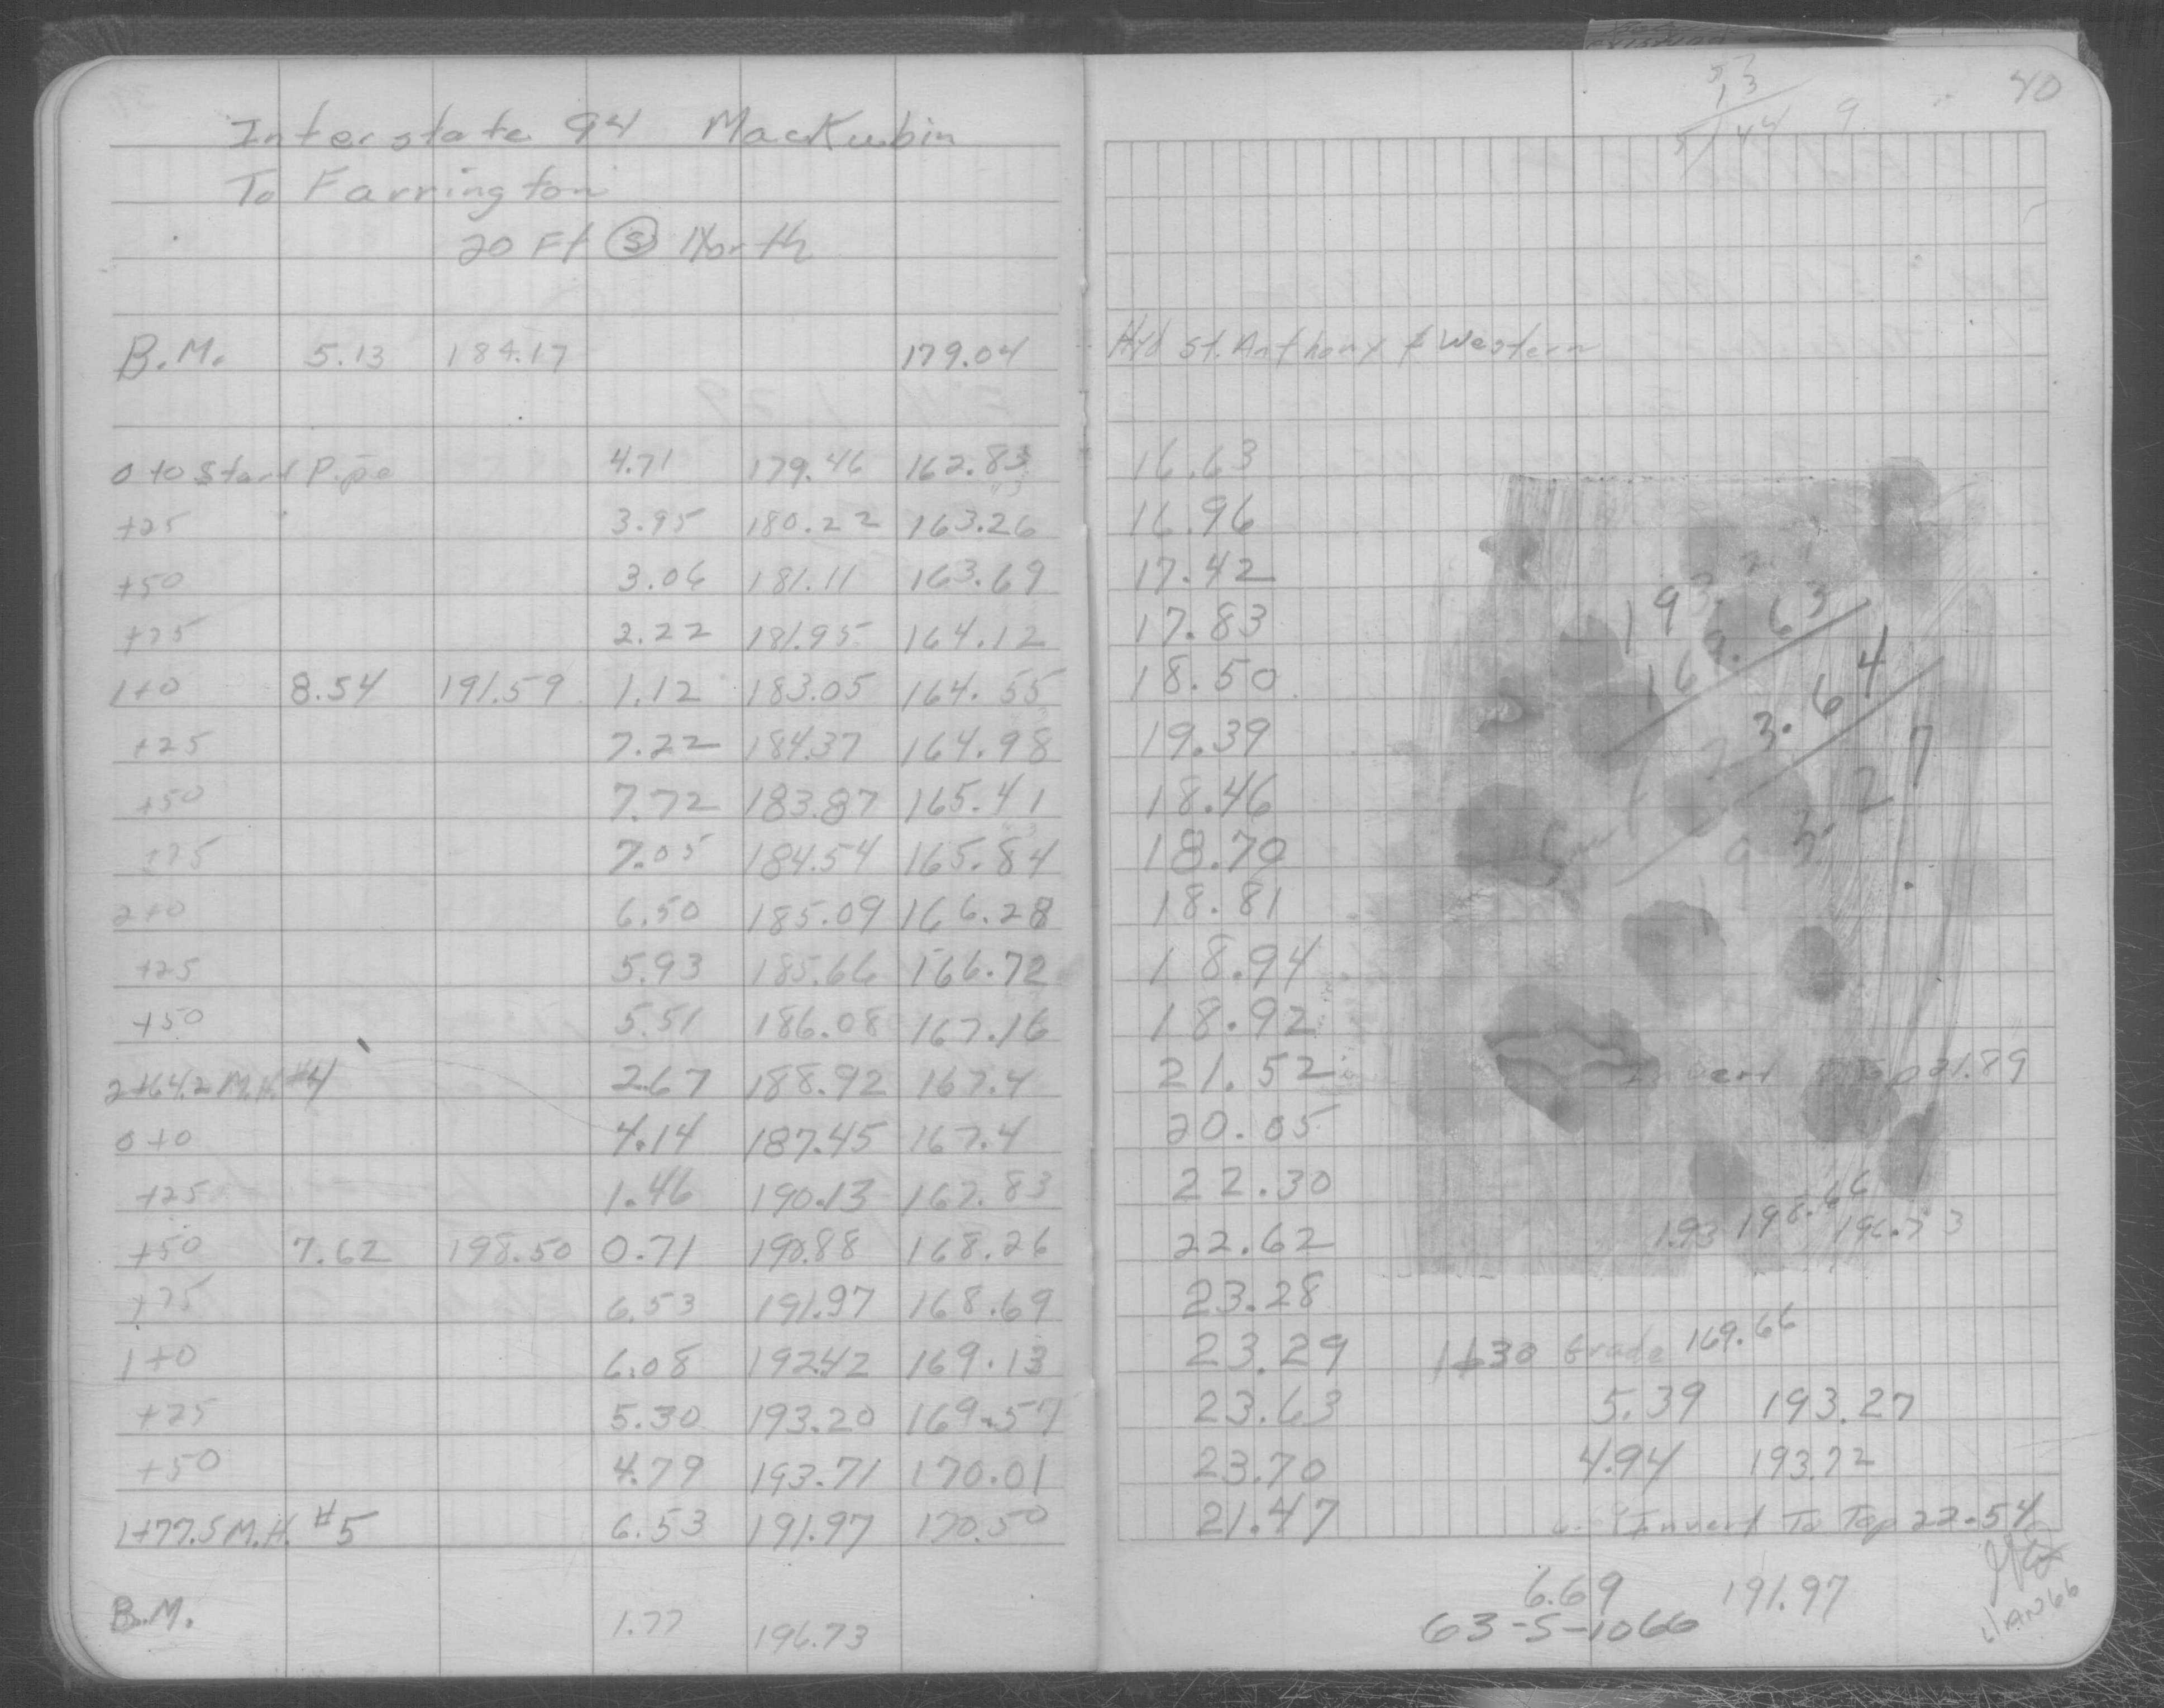 Interstate 94 Mackubin
To Farrington
20 Ft (S) North
B.M. 5.13 184.17 179.04
0+0 Start Pipe 4.71 179.46 162.83
+25 3.95 180.22 163.26
+50 3.06 181.11 163.69
+75 2.22 181.95 164.12
1+0 8.54 191.59 1.12 183.05 164.55
+25 7.22 184.37 164.98
+50 7.72 183.87 165.41
+75 7.05 184.54 165.84
2+0 6.50 185.09 166.28
+25 5.93 185.66 166.72
+50 5.51 186.08 167.16
2+64.2 M.H. #4 2.67 188.92 167.4
0+0 4.14 187.45 167.4
+25 1.46 190.13 167.83
+50 7.62 198.50 0.71 190.88 168.26
+75 6.53 191.97 168.69
1+0 6.08 192.42 169.13
+25 5.30 193.20 169.57
+50 4.79 193.71 170.01
1+77.5 M.H. #5 6.53 191.97 170.50
B.M. 1.77 196.73
40
Hyd St. Anthony & Western
16.63
16.96
17.42
17.83
18.50
19.39
18.46
18.70
18.81
18.94
18.92
21.52 Invert Top 21.89
20.05
22.30
22.62 1.93 198.66 196.73
23.28
23.29 1+30 Grade 169.66
23.63 5.39 193.27
23.70 4.94 193.72
21.47 Invert To Top 22.54
6.69 191.97
63-S-1066
JAN 66